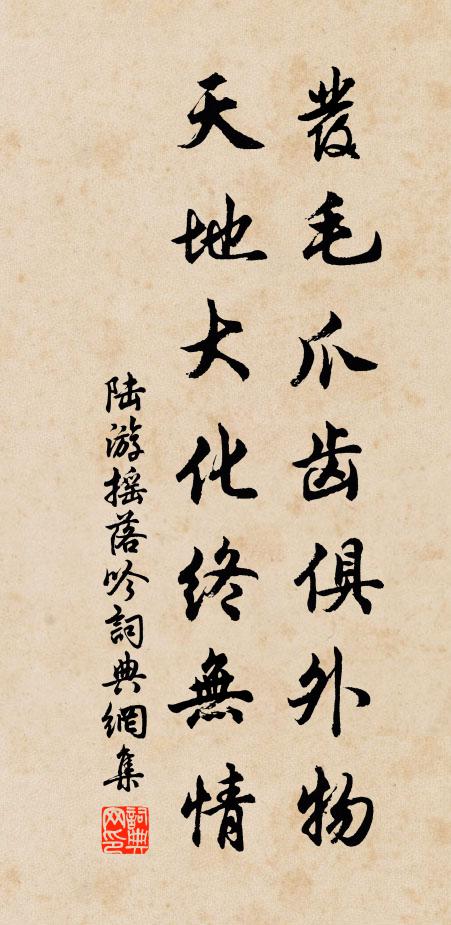 发毛爪齿俱外物
天地大化终無情
陆游摇落吟詞典網集
詞典网印